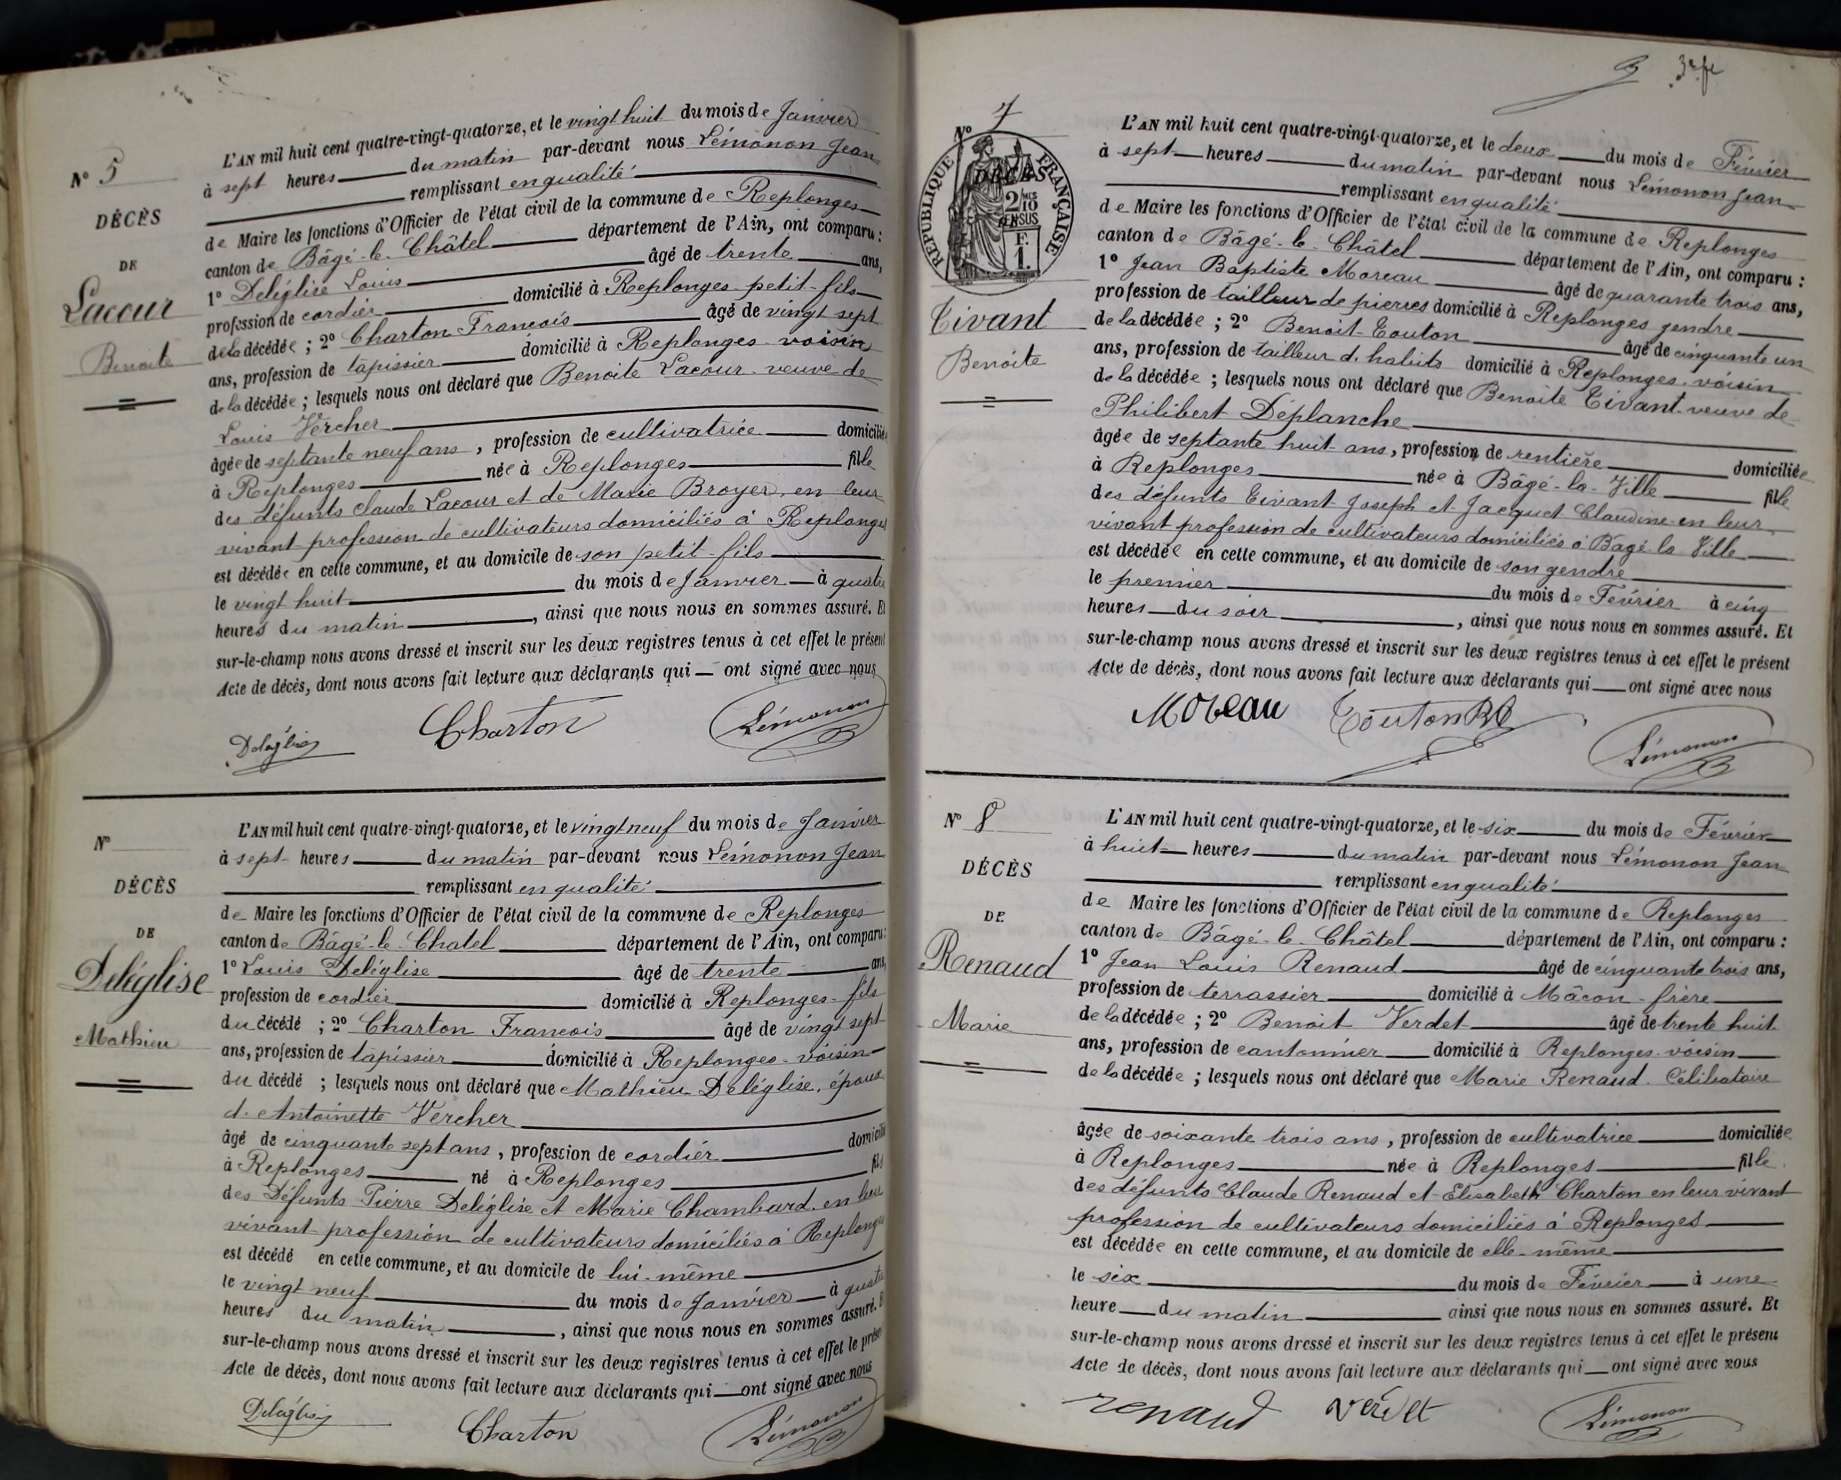 N° 5
DÉCÈS
DE
Lacour
Benoite
L'AN mil huit cent quatre-vingt-quatorze, et le vingt huit du mois de Janvier
à sept heures du matin par-devant nous Lémonon Jean
remplissant en qualité
de Maire les fonctions d'Officier de l'état civil de la commune de Replonges
canton de Bâgé-le-Châtel département de l'Ain, ont comparu :
1° Deléglise Louis âgé de trente ans,
profession de cordier domicilié à Replonges petit-fils
de la décédée ; 2° Charton François âgé de vingt sept
ans, profession de tapissier domicilié à Replonges voisin
de la décédée ; lesquels nous ont déclaré que Benoite Lacour veuve de
Louis Vercher
âgée de septante neuf ans, profession de cultivatrice domiciliée
à Replonges née à Replonges fille
des défunts Claude Lacour et de Marie Broyer, en leur
vivant profession de cultivateurs domiciliés à Replonges
est décédée en cette commune, et au domicile de son petit-fils
le vingt huit du mois de Janvier à quatre
heures du matin, ainsi que nous nous en sommes assuré. Et
sur-le-champ nous avons dressé et inscrit sur les deux registres tenus à cet effet le présent
Acte de décès, dont nous avons fait lecture aux déclarants qui ont signé avec nous
Deléglise Charton Lémonon
N°
DÉCÈS
DE
Deléglise
Mathieu
L'AN mil huit cent quatre-vingt-quatorze, et le vingt neuf du mois de Janvier
à sept heures du matin par-devant nous Lémonon Jean
remplissant en qualité
de Maire les fonctions d'Officier de l'état civil de la commune de Replonges
canton de Bâgé-le-Chatel département de l'Ain, ont comparu :
1° Louis Deléglise âgé de trente ans,
profession de cordier domicilié à Replonges-fils
du décédé ; 2° Charton François âgé de vingt sept
ans, profession de tapissier domicilié à Replonges-voisin
du décédé ; lesquels nous ont déclaré que Mathieu Deléglise, époux
d'Antoinette Vercher
âgé de cinquante sept ans, profession de cordier domicilié
à Replonges né à Replonges fils
des Défunts Pierre Deléglise et Marie Chambard en leur
vivant profession de cultivateurs domiciliés à Replonges
est décédé en cette commune, et au domicile de lui-même
le vingt neuf du mois de Janvier à quatre
heures du matin, ainsi que nous nous en sommes assuré. E
sur-le-champ nous avons dressé et inscrit sur les deux registres tenus à cet effet le présen
Acte de décès, dont nous avons fait lecture aux déclarants qui ont signé avec nous
Deléglise Charton Lémonon
3e f
N° 7
RÉPUBLIQUE FRANÇAISE
DÉCÈS
2/10
EN SUS
F.
1.
Tivant
Benoite
L'AN mil huit cent quatre-vingt-quatorze, et le deux du mois de Février
à sept heures du matin par-devant nous Lémonon Jean
remplissant en qualité
de Maire les fonctions d'Officier de l'état civil de la commune de Replonges
canton de Bâgé-le-Châtel département de l'Ain, ont comparu :
1° Jean Baptiste Moreau âgé de quarante trois ans,
profession de tailleur de pierres domicilié à Replonges gendre
de la décédée ; 2° Benoit Touton âgé de cinquante un
ans, profession de tailleur d'habits domicilié à Replonges-voisin
de la décédée ; lesquels nous ont déclaré que Benoite Tivant veuve de
Philibert Déplanche
âgée de septante huit ans, profession de rentière domiciliée
à Replonges née à Bâgé-la-Ville fille
des défunts Tivant Joseph et Jacquet Claudine en leur
vivant profession de cultivateurs domiciliés à Bagé la Ville
est décédée en cette commune, et au domicile de son gendre
le premier du mois de Février à cinq
heures du soir, ainsi que nous nous en sommes assuré. Et
sur-le-champ nous avons dressé et inscrit sur les deux registres tenus à cet effet le présent
Acte de décès, dont nous avons fait lecture aux déclarants qui ont signé avec nous
Moreau Touton Lémonon
N° 8
DÉCÈS
DE
Renaud
Marie
L'AN mil huit cent quatre-vingt-quatorze, et le six du mois de Février
à huit heures du matin par-devant nous Lémonon Jean
remplissant en qualité
de Maire les fonctions d'Officier de l'état civil de la commune de Replonges
canton de Bâgé-le-Châtel département de l'Ain, ont comparu :
1° Jean Louis Renaud âgé de cinquante trois ans,
profession de terrassier domicilié à Mâcon-frère
de la décédée ; 2° Benoit Verdet âgé de trente huit
ans, profession de cantonnier domicilié à Replonges-voisin
de la décédée ; lesquels nous ont déclaré que Marie Renaud. Célibataire
âgée de soixante trois ans, profession de cultivatrice domiciliée
à Replonges née à Replonges fille
des défunts Claude Renaud et Elisabeth Charton en leur vivant
profession de cultivateurs domiciliés à Replonges
est décédée en cette commune, et au domicile de elle-même
le six du mois de Février à une
heure du matin ainsi que nous nous en sommes assuré. Et
sur-le-champ nous avons dressé et inscrit sur les deux registres tenus à cet effet le présent
Acte de décès, dont nous avons fait lecture aux déclarants qui ont signé avec nous
renaud verdet Lémonon